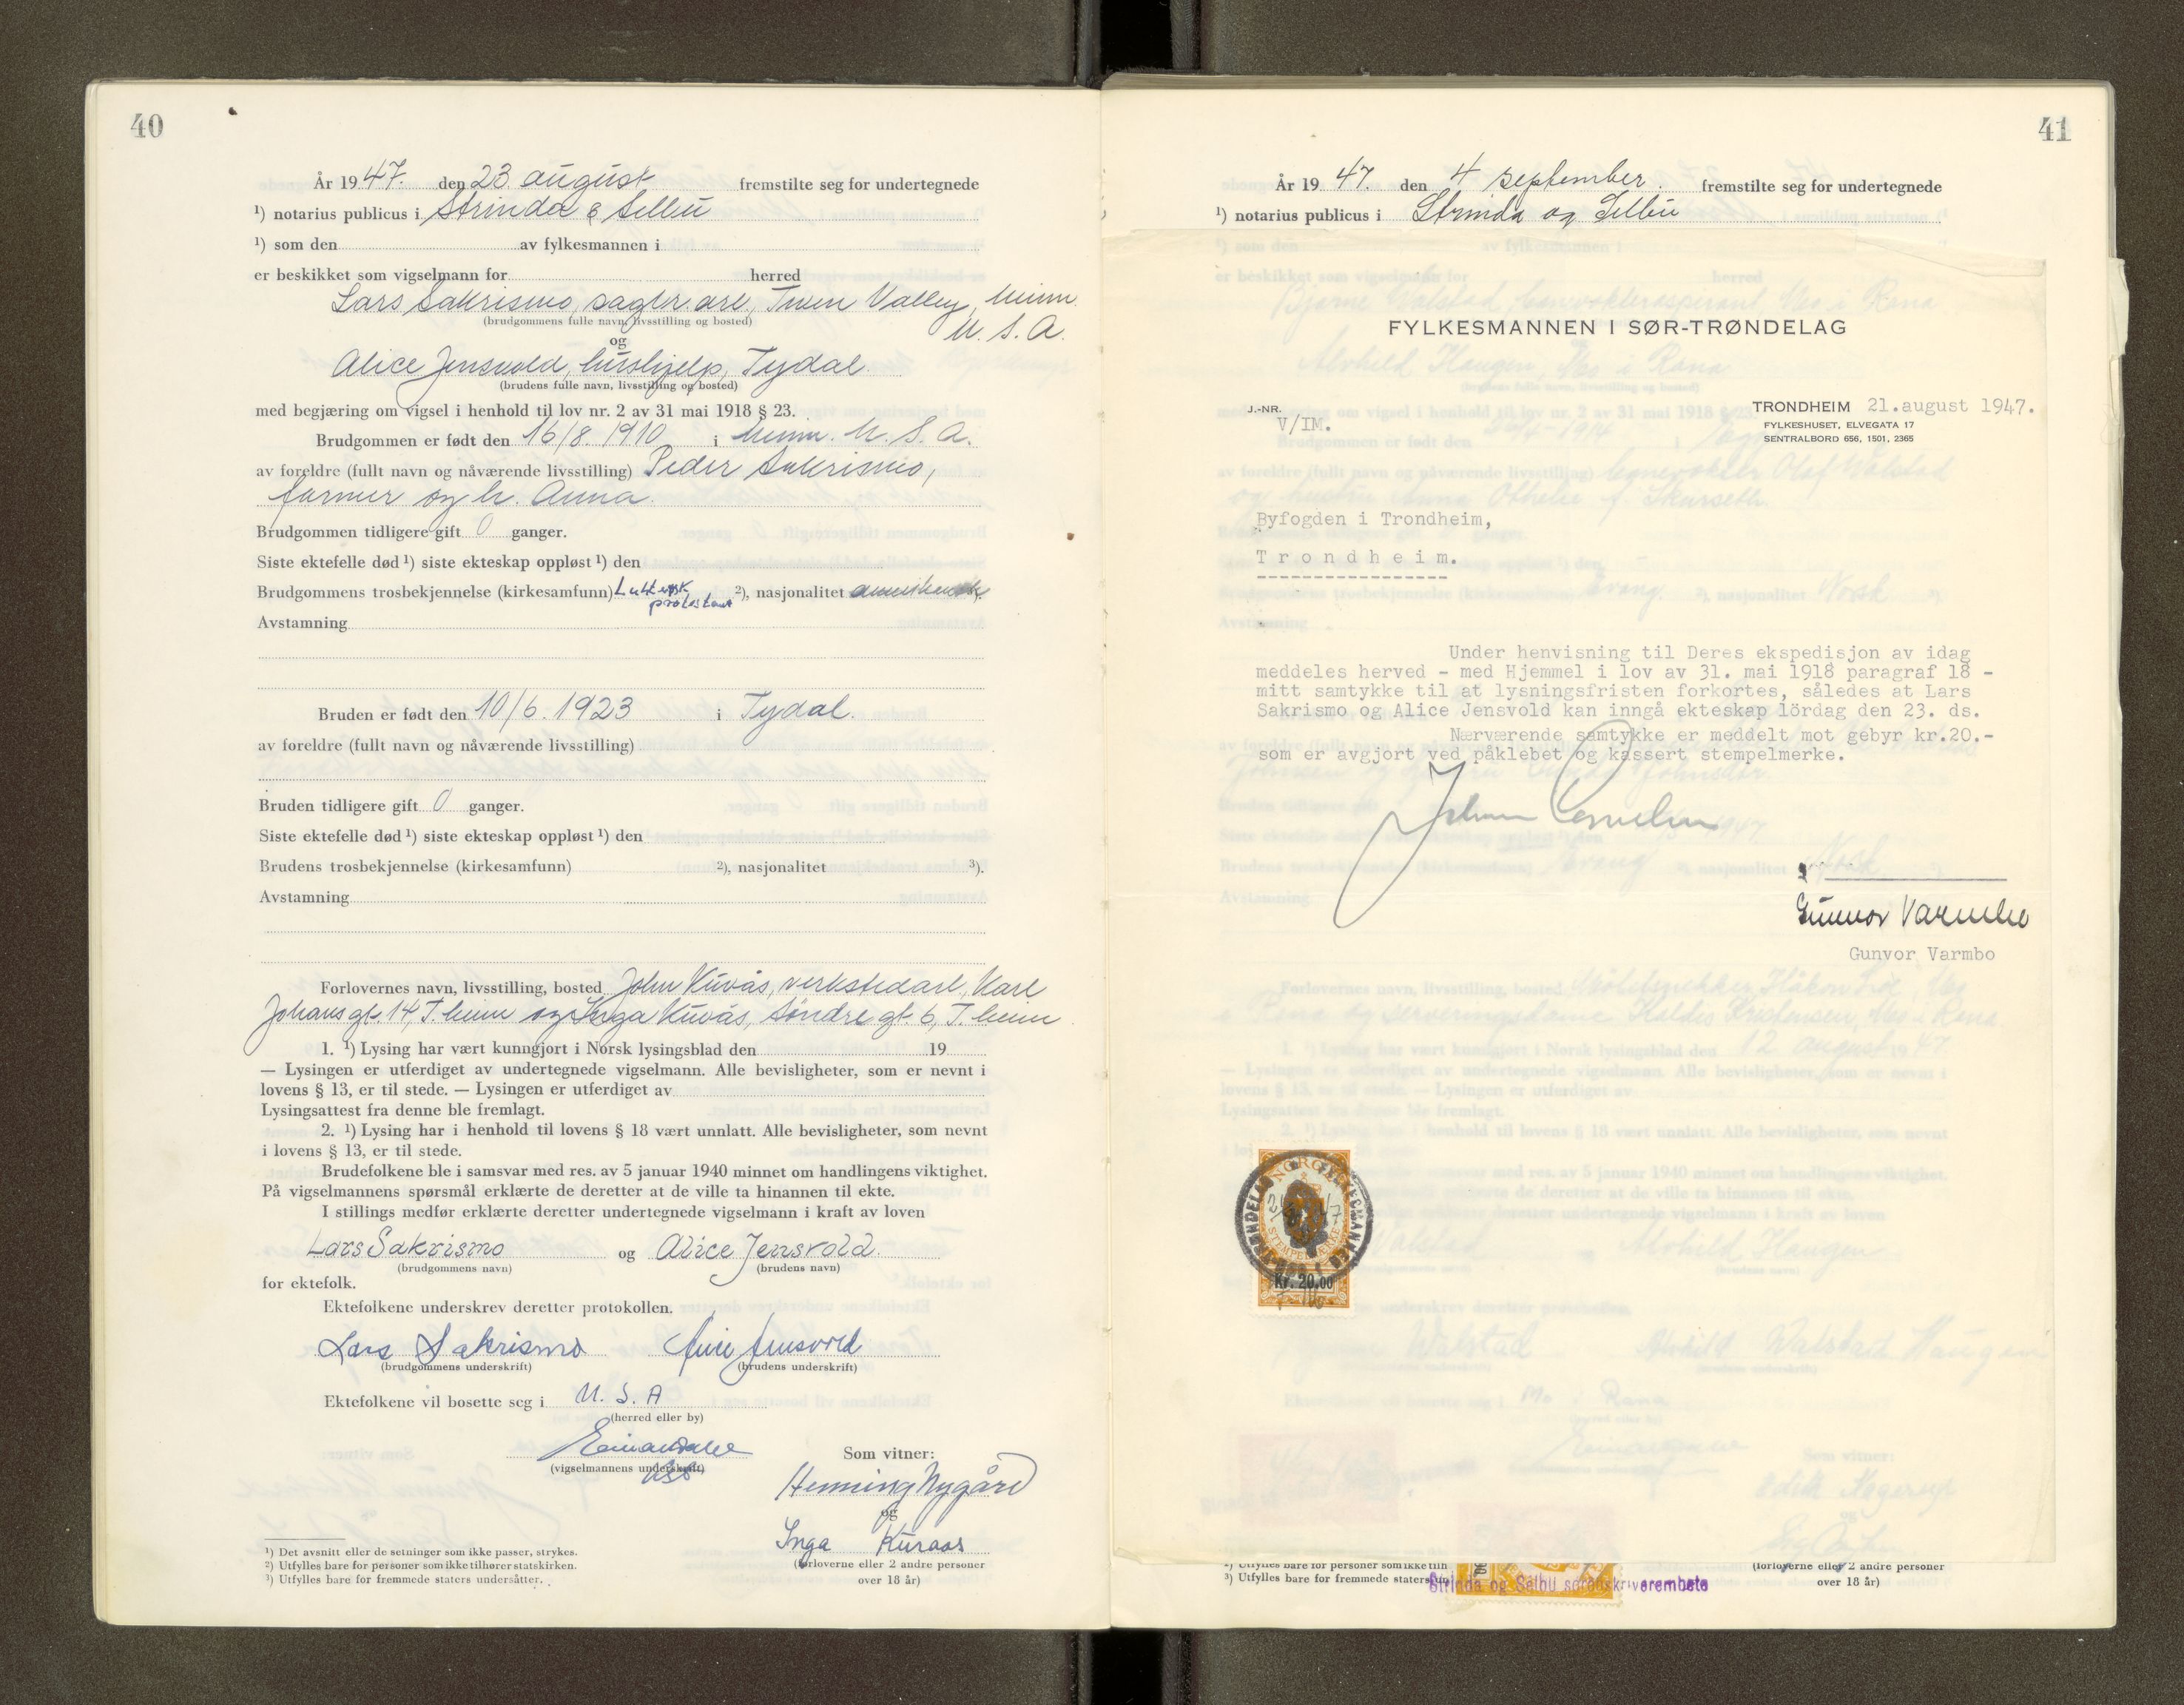 40
År 1947. den 23 august fremstilte seg for undertegnede
¹) notarius publicus i Strinda & Selbu
¹) som den av fylkesmannen i
er beskikket som vigselmann for herred
Lars Sakrismo, sagbr.arb., Twin Valley, Minn.
(brudgommens fulle navn, livsstilling og bosted)
U. S. A.
og
Alice Jensvold, hushjelp, Tydal
(brudens fulle navn, livsstilling og bosted)
med begjæring om vigsel i henhold til lov nr. 2 av 31 mai 1918 § 23.
Brudgommen er født den 16/8. 1910 i Minn. U. S. A.
av foreldre (fullt navn og nåværende livsstilling) Peder Sakrismo,
farmer og h. Anna.
Brudgommen tidligere gift 0 ganger.
Siste ektefelle død ¹) siste ekteskap oppløst ¹) den
Brudgommens trosbekjennelse (kirkesamfunn) Luthersk protestant ²), nasjonalitet amerikansk
Avstamning
Bruden er født den 10/6. 1923 i Tydal.
av foreldre (fullt navn og nåværende livsstilling)
Bruden tidligere gift 0 ganger.
Siste ektefelle død ¹) siste ekteskap oppløst ¹) den
Brudens trosbekjennelse (kirkesamfunn) ²), nasjonalitet ³).
Avstamning
Forlovernes navn, livsstilling, bosted John Kuvås, verkstedarb., Karl
Johansgt. 14, T.heim og Inga Kuvås, Søndre gt. 6, T.heim
1. ¹) Lysing har vært kunngjort i Norsk lysingsblad den 19
— Lysingen er utferdiget av undertegnede vigselmann. Alle bevisligheter, som er nevnt i
lovens § 13, er til stede. — Lysingen er utferdiget av
Lysingsattest fra denne ble fremlagt.
2. ¹) Lysing har i henhold til lovens § 18 vært unnlatt. Alle bevisligheter, som nevnt
i lovens § 13, er til stede.
Brudefolkene ble i samsvar med res. av 5 januar 1940 minnet om handlingens viktighet.
På vigselmannens spørsmål erklærte de deretter at de ville ta hinannen til ekte.
I stillings medfør erklærte deretter undertegnede vigselmann i kraft av loven
Lars Sakrismo og Alice Jensvold.
(brudgommens navn) (brudens navn)
for ektefolk.
Ektefolkene underskrev deretter protokollen.
Lars Sakrismo Alice Jensvold
(brudgommens underskrift) (brudens underskrift)
Ektefolkene vil bosette seg i U. S. A
(herred eller by)
(vigselmannens underskrift)
Som vitner:
Henning Nygård
og
Inga Kuraas
(forloverne eller 2 andre personer
over 18 år)
¹) Det avsnitt eller de setninger som ikke passer, strykes.
²) Utfylles bare for personer som ikke tilhører statskirken.
³) Utfylles bare for fremmede staters undersåtter.
41
År 1947. den 4 september. fremstilte seg for undertegnede
¹) notarius publicus i Strinda og Selbu
FYLKESMANNEN I SØR-TRØNDELAG
J.-NR.
V/IM.
TRONDHEIM 21.august 1947.
FYLKESHUSET, ELVEGATA 17
SENTRALBORD 656, 1501, 2365
Byfogden i Trondheim,
Trondheim.
Under henvisning til Deres ekspedisjon av idag
meddeles herved - med Hjemmel i lov av 31. mai 1918 paragraf 18 -
mitt samtykke til at lysningsfristen forkortes, således at Lars
Sakrismo og Alice Jensvold kan inngå ekteskap lördag den 23. ds.
Nærværende samtykke er meddelt mot gebyr kr.20.-
som er avgjort ved påklebet og kassert stempelmerke.
Gunvor Varmbo
Gunvor Varmbo
Kr. 20,00
²) Utfylles bare for personer som ikke tilh
³) Utfylles bare for fremmede staters un
Strinda og Selbu sorenskriverembete
(forloverne eller 2 andre personer
over 18 år)